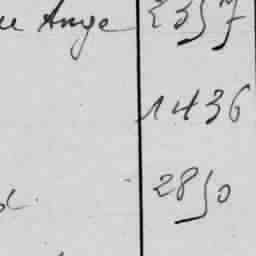 Ange 2357
1436
2850